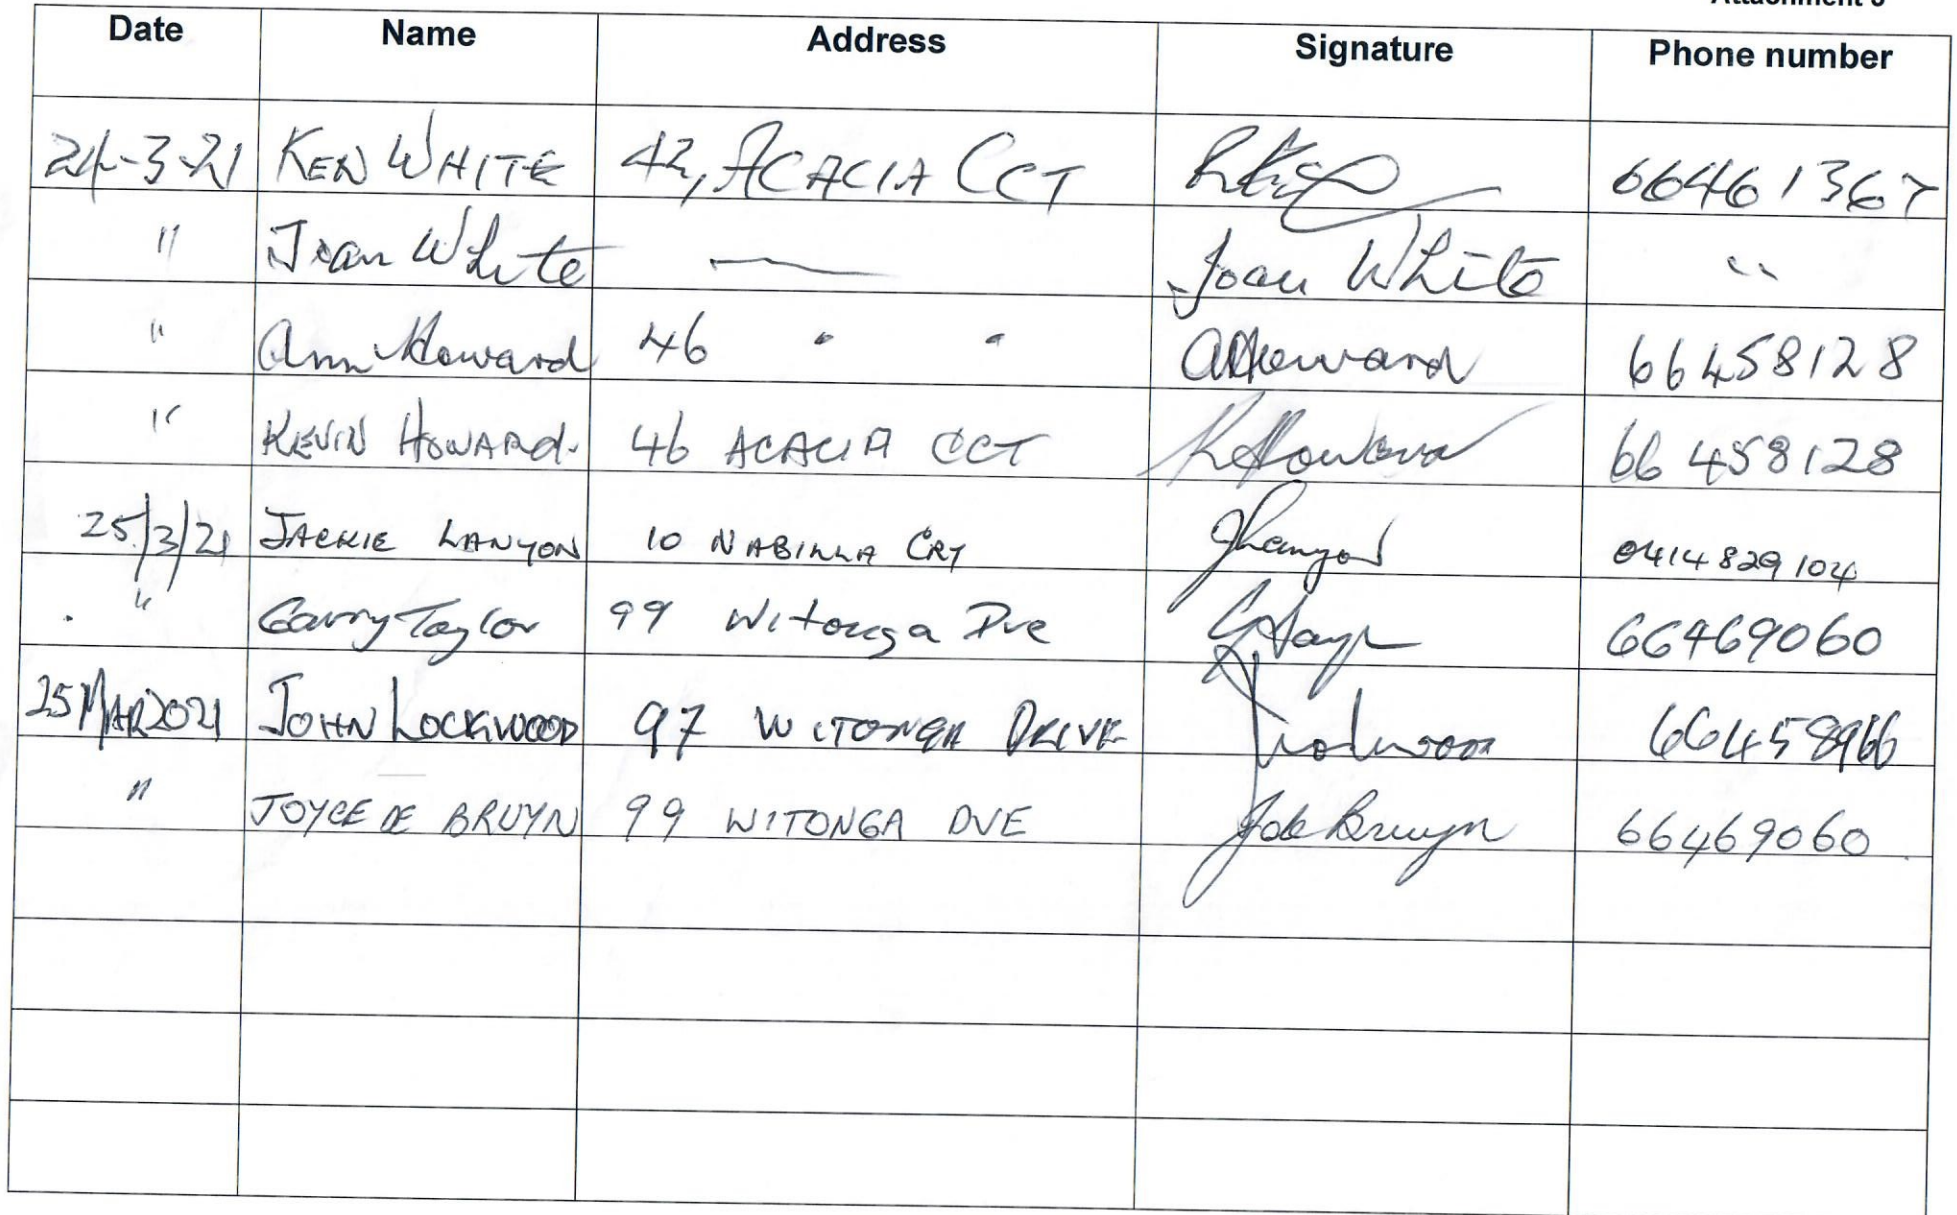 Date Name Address Signature Phone number
24-3-21 KEN WHITE 42, ACACIA CCT 66461367
" Joan White — Joan White "
" Ann Howard 46 " " AHoward 66458128
" KEVIN HOWARD. 46 ACACIA CCT KHoward 66 458128
25/3/21 JACKIE LANYON 10 NABILLA CRT JLanyon 0414829104
" Garry Taylor 99 Witonga Dve 66469060
25 MAR 2021 JOHN LOCKWOOD 97 WITONGA DRIVE 66458966
" JOYCE DE BRUYN 99 WITONGA DVE JdeBruyn 66469060